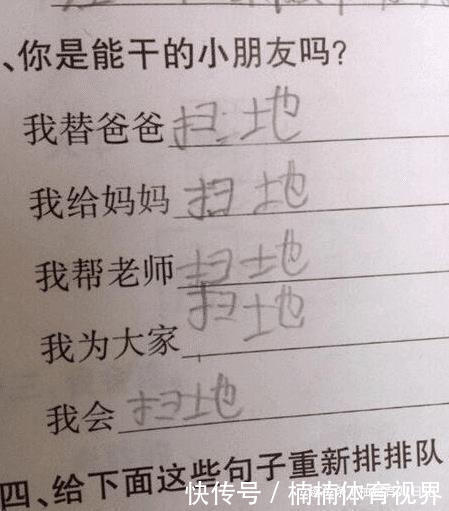 、你是能干的小朋友吗?
我替爸爸扫地
我给妈妈扫地
我帮老师扫地
我为大家扫地
我会扫地
四、给下面这些句子重新排排队
快传号/楠楠体育视界